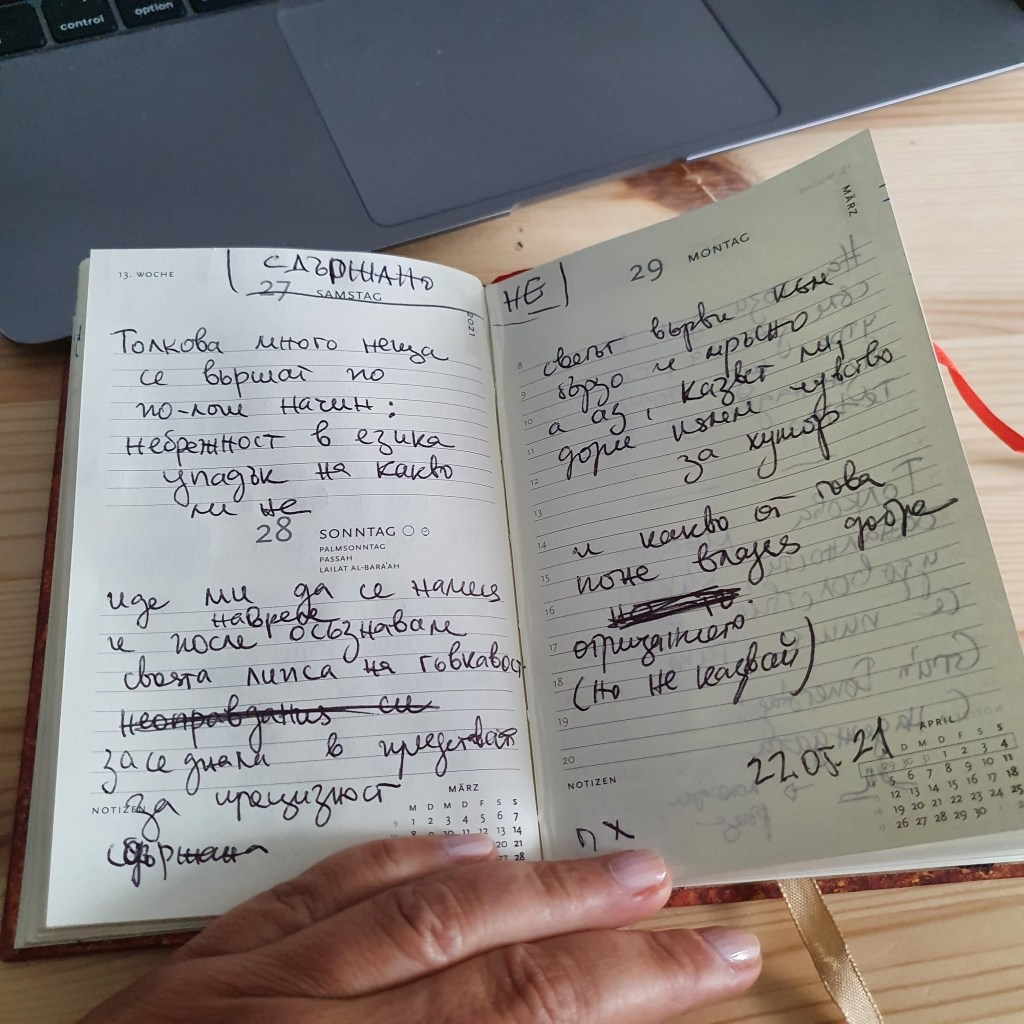 control
option
13. WOCHE
СДЪРЖАНО
27 SAMSTAG
2021
Толкова много неща
се вършат по
по-лош начин:
небрежност в езика
упадък на какво
ли не
28 SONNTAG
PALMSONNTAG
PASSAH
LAILAT AL-BARA'AH
иде ми да се намеся
навреме
и после осъзнавам
своята липса на гъвкавост
неоправдания си
заседнала в представата
за прецизност
NOTIZEN
сдържана
MÄRZ
M D M D F S S
1 2 3 4 5 6 7
8 9 10 11 12 13 14
20 21
27 28
MÄRZ
НЕ
29 MONTAG
8
светът върви към
9
бързо и мръсно
10
а аз, казват ми,
11
дори нямам чувство
12
за хумор
13
14
и какво от това
15
поне владея добре
16
17
отрицанието
18
(но не казвай)
19
20
22.05.21
NOTIZEN
пх
APRIL
M D M D F S S
1 2 3 4
5 6 7 8 9 10 11
12 13 14 15 16 17 18
19 20 21 22 23 24 25
26 27 28 29 30